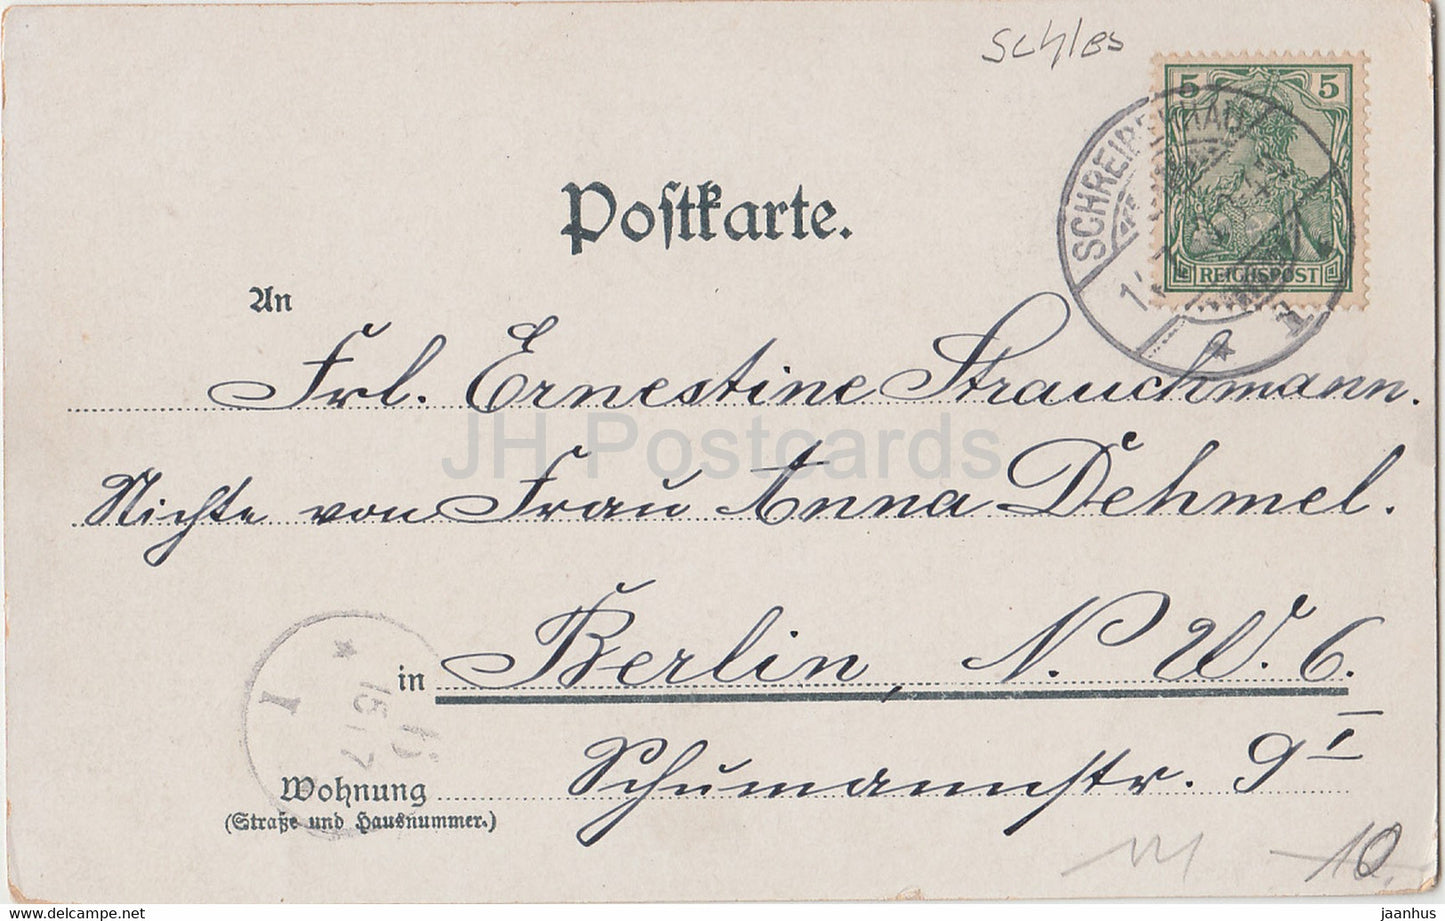 Schles
5 5
SCHREIBERHAU
REICHSPOST
1
Postkarte.
An
Frl. Ernestine Strauchmann.
JH Postcards
Nichte von Frau Anna Dehmel.
in Berlin, N. W. 6.
1
15 7
Wohnung Schumannstr. 9 I
(Straße und Hausnummer.)
10
jaanhus